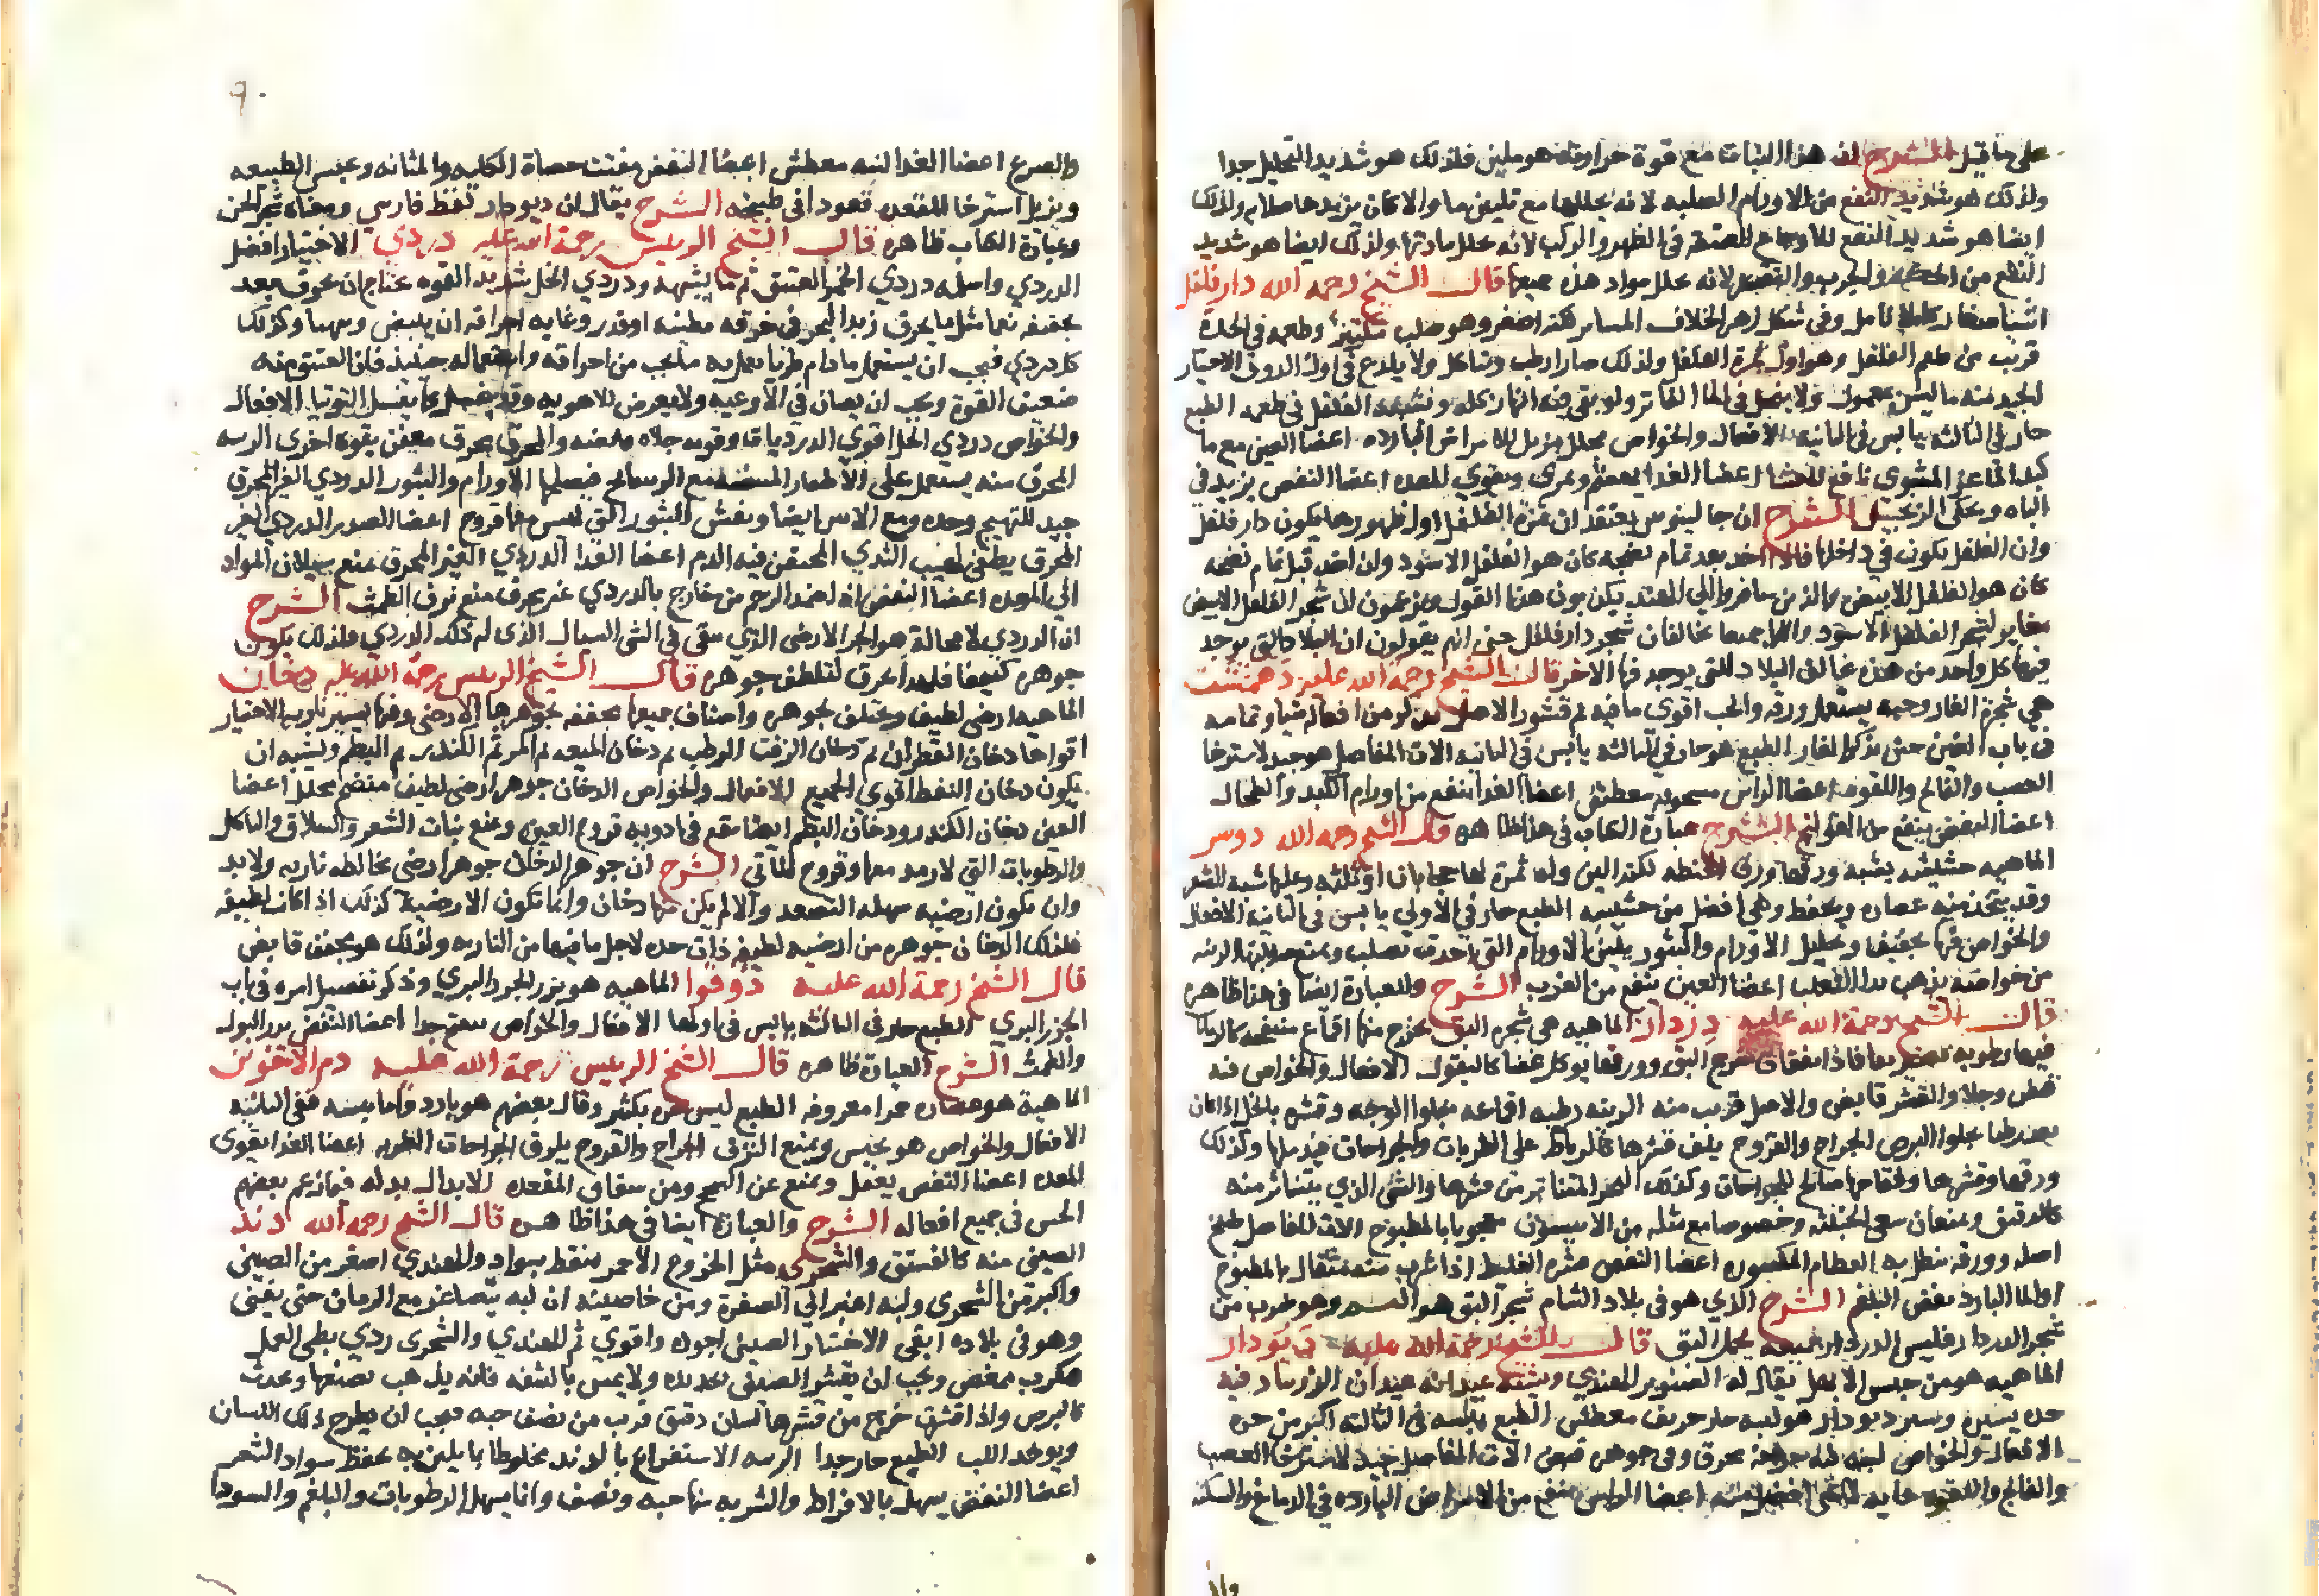 على ما قيل الشرح ان هذا النبات مع قوة حرارته هو ملين فلذلك هو شديد التحليل جدا
ولذلك هو شديد النفع من الاورام الصلبه لانه يحللها مع تليين ما والا كان يزيدها صلابه ولذلك
ايضا هو شديد النفع للاوجاع العتيقه في الظهر والركب لانه يحلل مادتها ولذلك ايضا هو شديد
النفع من الحكه والجرب والقمل لانه يحلل مواد هذه جميعها قال الشيخ رحمه الله دار فلفل
وفي شكل زهر الخلاف المساير لكنه اصغر وهو صلب وطعمه في الحدة
قريب من طعم الفلفل وهو اول ثمرة الفلفل ولذلك صار ارطب ويتاكل ولا يلدع في اول الذوق الاختيار
الجيد منه ما ليس بمعمول ولا ينحل في الما الفاتر ولو بقي فيه النهار كله ويشبه الفلفل في طعمه الطبع
حار في الثالثه يابس في الثانيه الافعال والخواص محلل مزيل للامراض البارده اعضا العين مع ما
كبد الماعز المشوي نافع للعشا اعضا الغدا يهضم ويمري ويقوي المعده اعضا النفض يزيد في
الباه ويحكي الزنجبيل الشرح ان جالينوس يعتقد ان ثمرة الفلفل اول ظهورها يكون دار فلفل
وان الفلفل يكون في داخلها فاذا اخذ بعد تمام نضجه كان هو الفلفل الاسود وان اخذ قبل تمام نضجه
كان هو الفلفل الابيض والذين سافروا الي الهند يكذبون هذا القول ويزعمون ان شجر الفلفل الابيض
مغاير لشجر الفلفل الاسود وانهما جميعا مخالفان لشجر دار فلفل حتى انهم يقولون ان البلاد التي يوجد
فيها كل واحد من هذه مخالف البلاد التي يوجد فيها الاخر قال الشيخ رحمة الله عليه دهمست
هي شجرة الغار وحبه يستعمل ورقه والحب اقوى ما فيه ثم قشور الاصل يذكر من افعاله شيا وتمامه
في باب الغين حين نذكر الغار الطبع هو حار في الثالثه يابس في الثانيه الات المفاصل هو جيد لاسترخا
العصب والفالج واللقوه اعضا الراس مسحوقه معطش اعضا الغدا ينفع من اورام الكبد والطحال
اعضا النفض ينفع من القولنج الشرح عبارة الكتاب في هذا ظاهره قال الشيخ رحمه الله دوسر
الماهيه حشيشه يشبه ورقها ورق الحنطه لكنه الين وله ثمرة لها حجابان او ثلثه وعليها شبه الشعر
وقد يتخذ منه عصاره ويحفظ وهي افضل من حشيشه الطبع حار في الاولي يابس في الثانيه الافعال
والخواص فيها تجفيف وتحليل الاورام والبثور يلين الاورام التي اخذت تصلب ويمنع صلابتها الزينه
من خواصه يذهب بداء الثعلب اعضا العين ينفع من الغرب الشرح والعبارة ايضا في هذا ظاهره
قال الشيخ رحمة الله عليه دردار الماهيه هي شجره البق يخرج منها اقماع منتفخه كالرمان
فيها رطوبه تصير بقا فاذا انفقات خرج البق وورقها يوكل غضا كالبقول الافعال والخواص فيه
قبض وجلا والقشر قابض والاصل قريب منه الزينه رطبه اقماعه يجلوا الوجه وقشره بالخل اذا كان
بعد رطبا يجلوا البرص الجراح والقروح يلف قشرها كالرباط على الضربات والجراحات فيدملها وكذلك
ورقها وقشرها صالح للجراحات وكذلك المتناثر من قشرها والشي الذي يتناثر منه
كالدقيق ويمنعان سعي الخبيثه وخصوصا مع مثله من الانيسون معجونا بالمطبوخ الات المفاصل طبخ
اصله وورقه ينطل به العظام المكسوره اعضا النفض قشره الغليظ اذا شرب منه مثقال بالمطبوخ
او الما البارد نفض البلغم الشرح الذي هو في بلاد الشام شجر البق هو وهو ضرب من
شجر الدردار وليس الدردار جميعه يحمل البق قال الشيخ رحمة الله عليه ديودار
الماهيه هو من جنس الابهل يقال له الصنوبر الهندي ويشبه عيدانه عيدان الزرنباد فيه
حده يسيره وشير ديودار هو لبنه حار حريف معطش الطبع يبسه في الثالثه اكثر من حره
الافعال والخواص لبنه محرق وفي جوهره قبض الات المفاصل جيد لاسترخا العصب
والفالج واللقوه غايه اعضا الراس ينفع من الامراض البارده في الدماغ والسكته
وا
والصرع اعضا الغدا لبنه معطش اعضا النفض يفتت حصاة الكليه والمثانه ويحبس الطبيعه
ويزيل استرخا المقعده قعودا في طبيخه الشرح يقال ان ديودار لفظ فارسي ومعناه شجر الجن
وعبارة الكتاب ظاهره قال الشيخ الرييس رحمة الله عليه دردي الاختيار افضل
الدردي واسلمه دردي الخمر العتيق ثم ما يشبهه ودردي الخل شديد القوه يحتاج ان يحرق بعد
تجفيفه نعما مثل ما يحرق زبد البحر في خرقه مطينه او قدر وغايه احراقه ان يبيض وكذلك
كل دردي فيجب ان يستعمل ما دام طريا يعمل به ما يجب من احراقه واستعماله حينئذ فان العتيق منه
ضعيف القوة ويجب ان يصان في الاوعيه ولا يعرض للاهويه وقد يغسل كما يغسل التوتيا الافعال
والخواص دردي الخل اقوي الدرديات وقوته جلاه والمحرق يحرق معفن بقوه اخرى الزينه
المحرق منه يستعمل على الاظفار مع فيصلحها الاورام والبثور الدردي الغير المحرق
جيد للتهيج وحده ومع الاس ايضا ويفش البثور التي ليس معها قروح اعضا الصدر الدردي الغير
المحرق يطفي لهيب الثدي المحتقن فيه الدم اعضا الغدا الدردي الغير المحرق يمنع سيلان المواد
الي المعده اعضا النفض اذا ضمد الرحم من خارج بالدردي غير محرق منع نزف الطمث الشرح
ان الدردي لا محالة هو الجز الارضي الذي يبقى في الشي السيال الذي له ذلك الدردي ولذلك يكون
جوهره كثيفا فلهذا يحرق لتلطف جوهره قال الشيخ الرييس رحمة الله عليه دخان
الماهيه ارضي لطيف ويختلف بجوهره واصناف جميعها مجففه بجوهرها الارضي وفيها يسير ناريه الاختيار
اقواها دخان القطران ثم دخان الزفت الرطب ثم دخان الميعه ثم المر ثم الكندر ثم البطم ويشبه ان
يكون دخان النفط اقوي الجميع الافعال والخواص الدخان جوهر ارضي لطيف منضج محلل اعضا
العين دخان الكندر ودخان البطم ايضا يقع في ادويه قروح العين ويمنع نبات الشعر والسلاق والتاكل
والرطوبات التي لا رمد معها وقروح الماقي الشرح ان جوهر الدخان جوهر ارضي يخالطه ناريه ولا بد
وان تكون ارضيه سهله التصعد والا لم يكن منها دخان وانما تكون الارضية كذلك اذا كانت لطيفه
فلذلك الدخان جوهره من ارضيه لطيفه ذات حده لاجل ما فيها من الناريه ولذلك هو مجفف قابض
قال الشيخ رحمة الله عليه دوقوا الماهيه هو بزر الجزر البري وذكر تفصيل امره في باب
الجزر البري الطبع حار في الثالثه يابس في اولها الافعال والخواص مفتح جدا اعضا النفض يدر البول
والطمث الشرح العبارة ظاهره قال الشيخ الرييس رحمة الله عليه دم الاخوين
الماهية هو عصاره حمرا معروفه الطبع ليس حره بكثير وقال بعضهم هو بارد واما يبسه ففي الثانيه
الافعال والخواص هو يحبس ويمنع النزف الجراح والقروح يلزق الجراحات الطريه اعضا الغدا يقوي
المعده اعضا النفض يعقل ويمنع عن السحج ومن شقاق المقعده الابدال بدله فيما زعم بعضهم
الخس في جميع افعاله الشرح والعبارة ايضا في هذا ظاهره قال الشيخ رحمه الله دند
الصيني منه كالفستق والشحري مثل الخروع الاحمر منقط بسواد والهندي اصغر من الصيني
واكبر من الشحري ولبه اغبر الي الصفرة ومن خاصيته ان لبه يتصاغر مع الزمان حتى يفنى
وهو في بلاده ابقى الاختيار الصيني اجود واقوي ثم الهندي والشحري ردي بطي العمل
مكرب ممغص ويجب ان يقشر الصيني بحديده ولا يمس بالشفه فانه يذهب بصبغها ويحدث
كالبرص واذا قشرته خرج من قشرها لسان دقيق قريب من نصف حبه فيجب ان يطرح ذلك اللسان
ويوخذ اللب الطبع حار جدا الزينه الاستفراغ بالدند مخلوطا بما يلين به يحفظ سواد الشعر
اعضا النفض يسهل بالافراط والشربه منه حبه ونصف وانما يسهل الرطوبات والبلغم والسودا